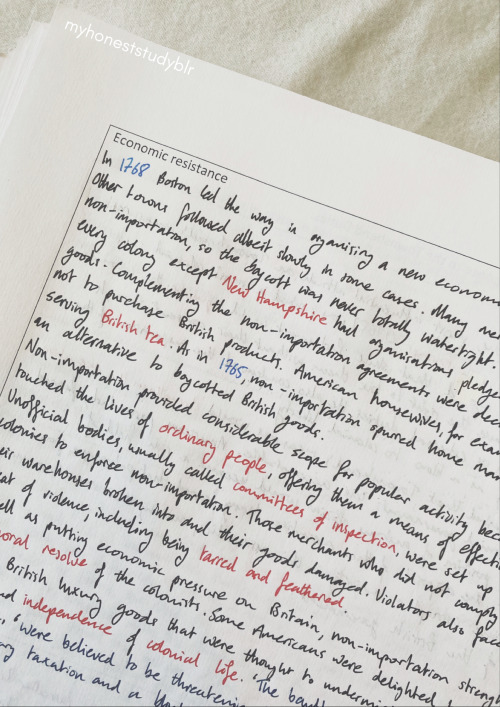 myhoneststudyblr
Economic resistance
In 1768 Boston led the way in organising a new econom
Other towns followed albeit slowly in some cases. Many
non-importation, so the boycott was never totally watertight.
every colony except New Hampshire had organisations pledge
goods. Complementing the non-importation agreements were
not to purchase British products. American housewives, for exam
serving British tea. As in 1765, non-importation spurred home man
an alternative to boycotted British goods.
Non-importation provided considerable scope for popular activity
touched the lives of ordinary people, offering them a means of effecti
Unofficial bodies, usually called committees of inspection, were set up
colonies to enforce non-importation. Those merchants who did not comply
warehouses broken into and their goods damaged. Violators also
of violence, including being tarred and feathered.
as putting economic pressure on Britain, non-importation
resolve of the colonists. Some Americans were delighted
British luxury goods that were thought to
independence of colonial life. 'The
'were believed to be
taxation and a